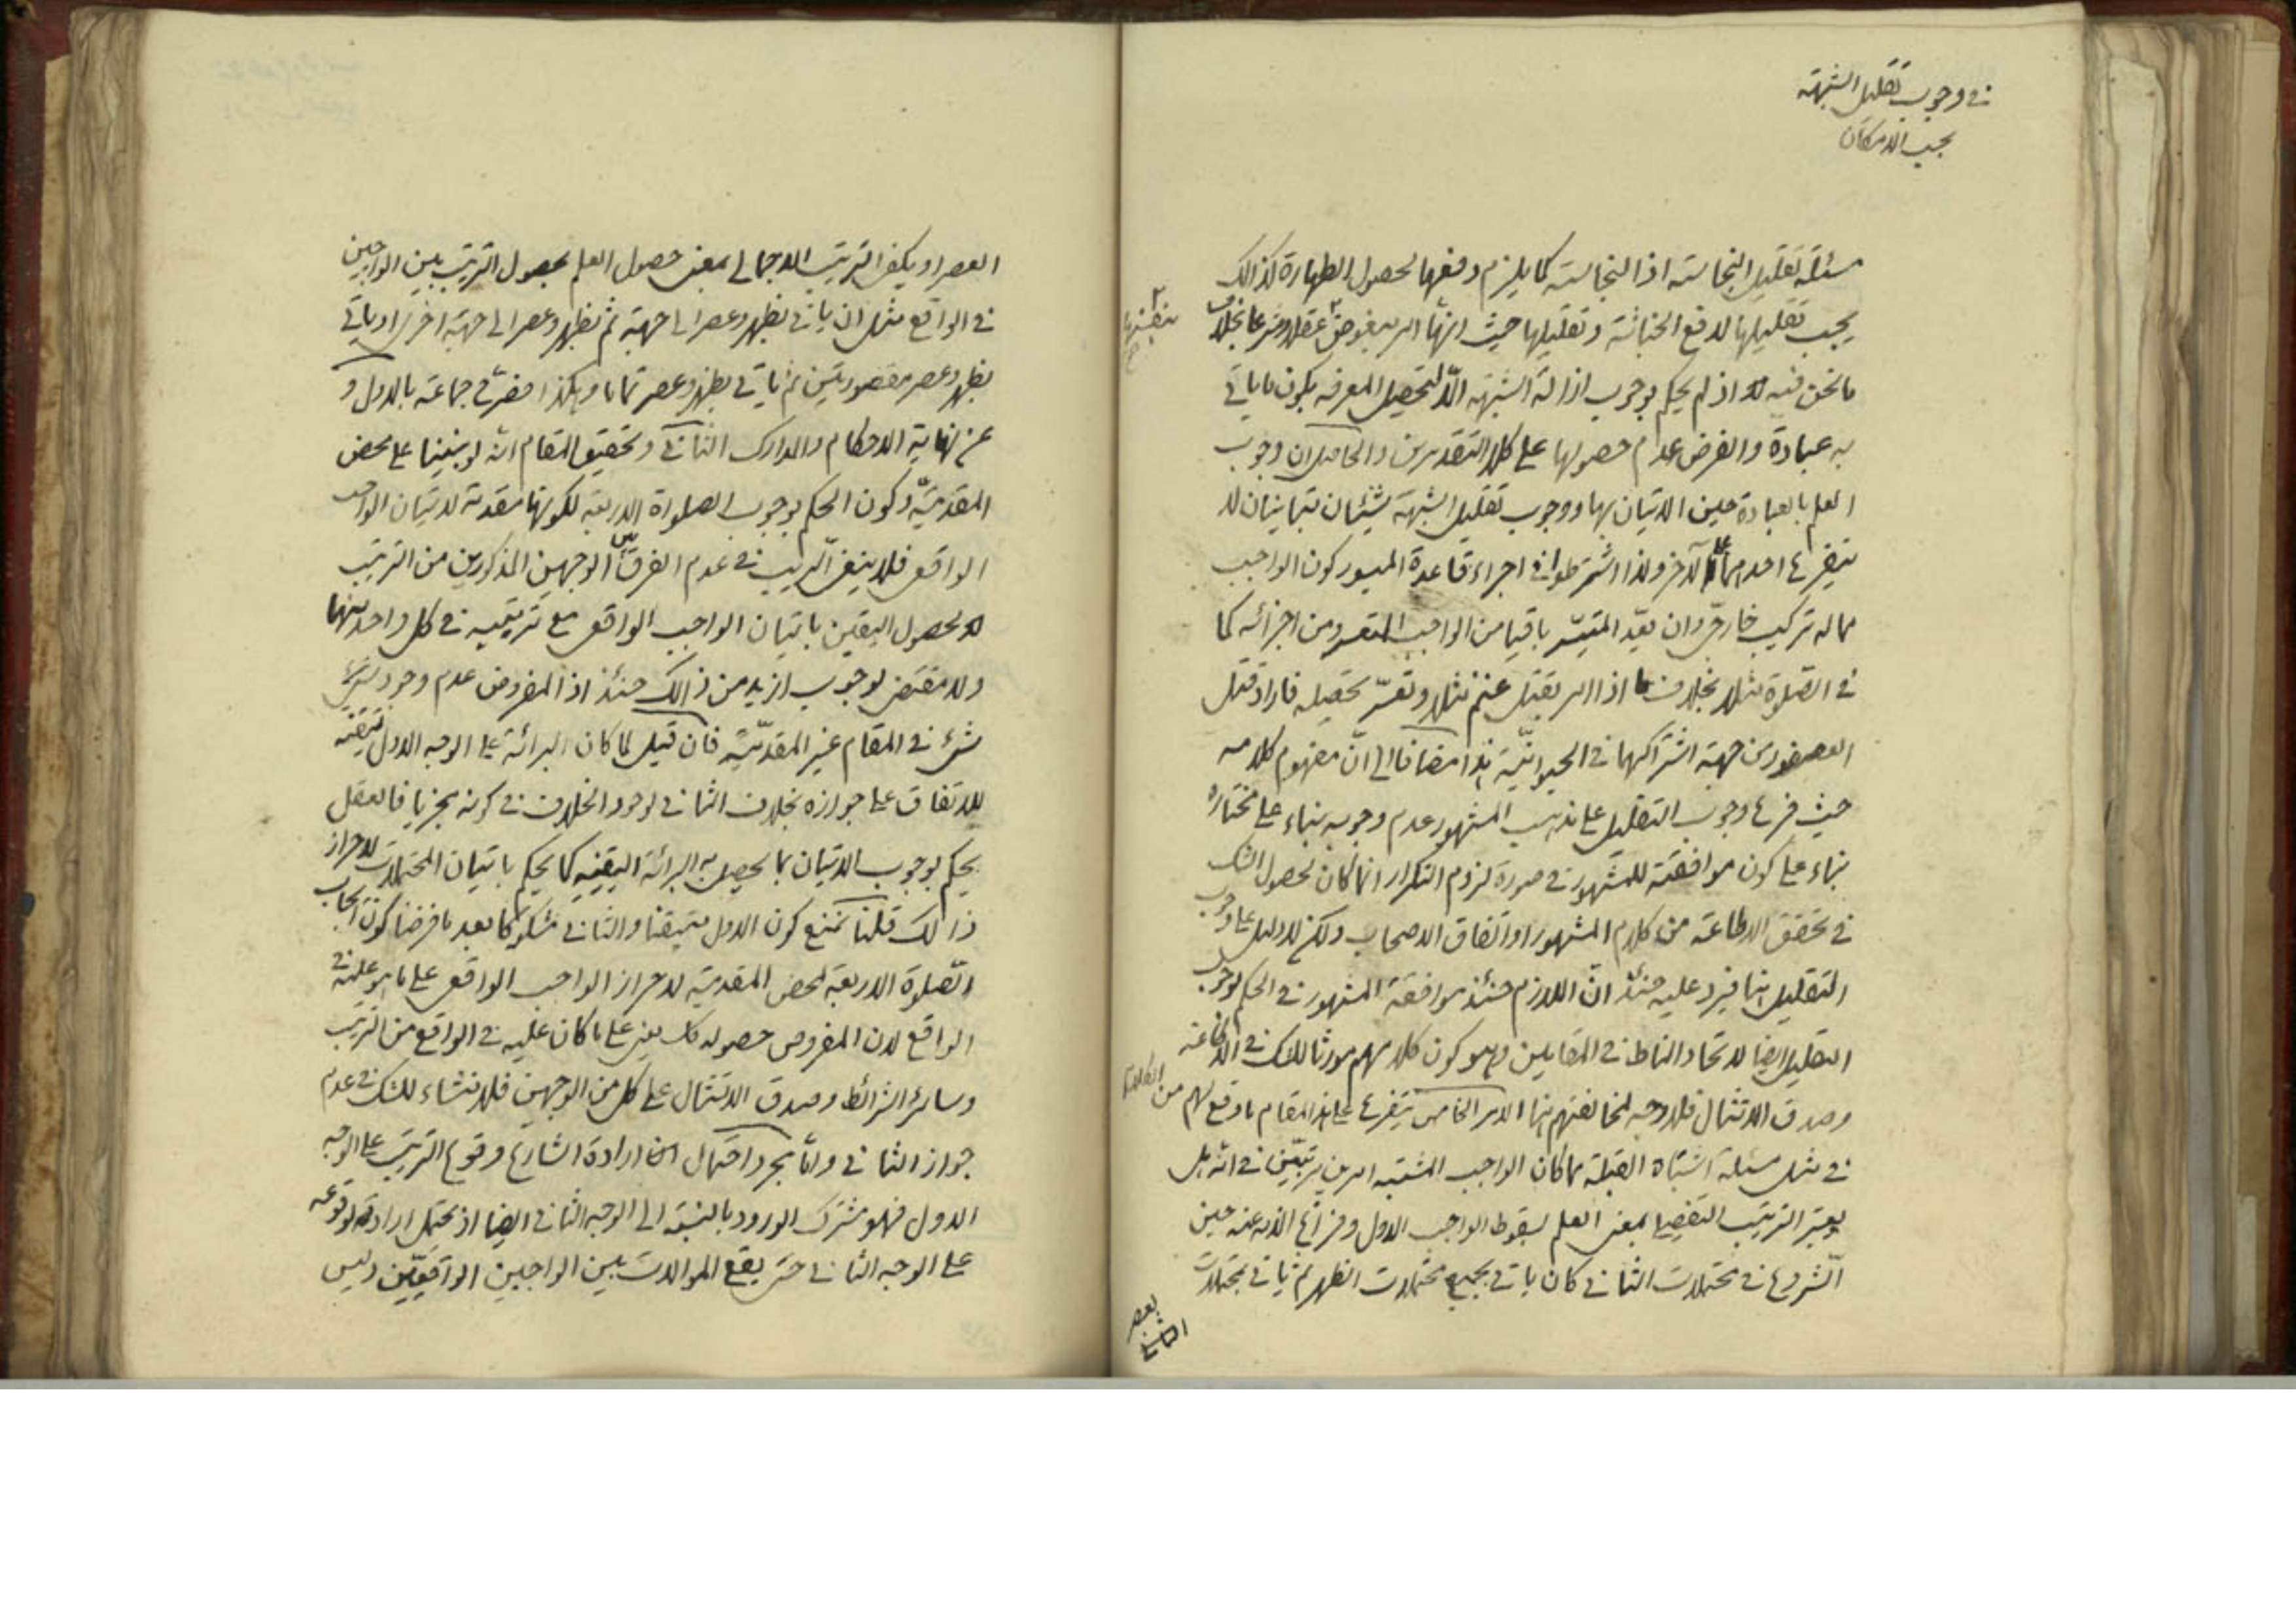 في وجوب تقليل الشبهة
بحسب الامكان
مسئلة تقليل النجاسة اذ النجاسة كما يلزم دفعها لحصول الطهارة كذالك
يجب تقليلها لدفع الخباثة وتقليلها حيث انها امر مبغوض عقلا وشرعا بخلاف
ما نحن فيه اذ لم يحكم بوجوب ازالة الشبهة الا لتحصيل المعرفة بكون ما ياتي
به عبادة والفرض عدم حصولها على كلا التقديرين والحاصل ان وجوب
العلم بالعبادة حين الاتيان بها ووجوب تقليل الشبهة شيئان متباينان لا
يتفرع احدهما على الآخر ولذا اشترطوا في اجراء قاعدة الميسور كون الواجب
مما له تركيب خارجي وان يعد المتيسر باقيا من الواجب المتعسر ومن اجزائه كما
في الصلوة مثلا بخلاف ما اذا امر بقتل غنم مثلا وتعسر تحصيله فاراد قتل
العصفور من جهة اشتراكهما في الحيوانية هذا مضافا الى ان مفهوم كلامه
حيث فرع وجوب التقليل على مذهب المشهور عدم وجوبه بناء على مختاره
بناء على كون موافقته للمشهور في صورة لزوم التكرار انما كان لحصول الشك
في تحقق الاطاعة من كلام المشهور او اتفاق الاصحاب ولكن لا دليل على وجوب
التقليل هنا فيرد عليه حينئذ ان اللازم حينئذ موافقة المشهور في الحكم بوجوب
التقليل ايضا لاتحاد المناط في المقامين وهو كون كلامهم مورثا للشك في الاطاعة
وصدق الامتثال فلا وجه لمخالفتهم هنا الامر الخامس يتفرع على هذا المقام ما وقع لهم من الخلاف
في مثل مسئلة اشتباه القبلة مما كان الواجب المشتبه امرين مترتبين في انه هل
يعتبر الترتيب التفصيلي بمعنى العلم بسقوط الواجب الاول وفراغ الذمة عنه حين
الشروع في محتملات الثاني كان ياتي بجميع محتملات الظهر ثم ياتي بمحتملات
العصر او يكفي الترتيب الاجمالي بمعنى حصول العلم بحصول الترتيب بين الواجبين
في الواقع مثل ان ياتي بظهر وعصر الى جهة ثم بظهر وعصر الى جهة اخرى او ياتي
بظهر وعصر مقصورتين ثم ياتي بظهر وعصر تماما وهكذا صرح جماعة بالاول و
عن نهاية الاحكام والمدارك الثاني وتحقيق المقام انه لو بنينا على محض
المقدمية وكون الحكم بوجوب الصلوة الاربعة لكونها مقدمة لاتيان الواجب
الواقعي فلا ينبغي الريب في عدم الفرق بين الوجهين المذكورين من الترتيب
لحصول اليقين باتيان الواجب الواقعي مع ترتيبه في كل واحد منهما
ولا مقتضى لوجوب ازيد من ذالك حينئذ اذ المفروض عدم وجود
شيء في المقام غير المقدمية فان قيل لما كان البرائة على الوجه الاول متيقنه
للاتفاق على جوازه بخلاف الثاني لوجود الخلاف في كونه مجزيا فالعقل
يحكم بوجوب الاتيان بما يحصل به البرائة اليقينيه كما يحكم باتيان المحتملات لاحراز
ذالك قلنا نمنع كون الاول متيقنا والثاني مشكوكا بعد ما فرضنا كون ايجاب
الصلوة الاربعة لمحض المقدمية لاحراز الواجب الواقعي على ما هو عليه في
الواقع لان المفروض حصوله كك يعني على ما كان عليه في الواقع من الترتيب
وسائر الشرائط وصدق الامتثال على كل من الوجهين فلا منشاء للشك في عدم
جواز الثاني واما مجرد احتمال ارادة الشارع وقوع الترتيب على الوجه
الاول فهو مشترك الورود بالنسبة الى الوجه الثاني ايضا اذ يحتمل ارادته لوقوعه
على الوجه الثاني حتى يقع الموالات بين الواجبين الواقعيين وليس